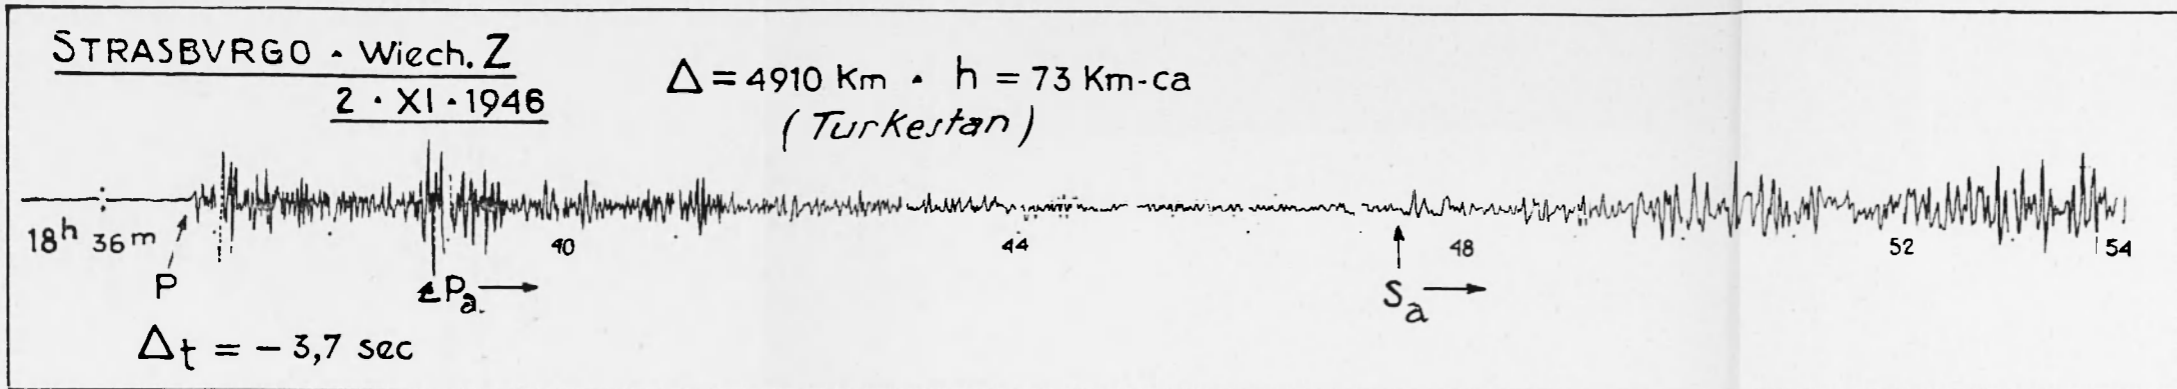 STRASBVRGO · Wiech. Z
2 · XI · 1946
Δ = 4910 Km · h = 73 Km-ca
(Turkestan)
18h 36m 40 44 48 52 54
P iPa → Sa →
Δt = - 3,7 sec